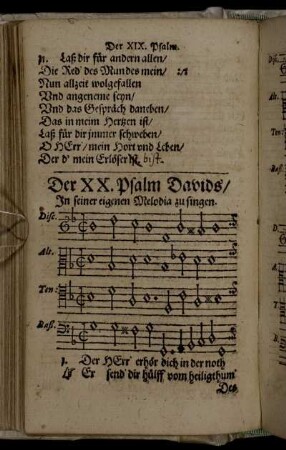 Der XIX. Psalm.
11. Laß dir für andern allen/
Die Red' des Mundes mein/
Nun allzeit wolgefallen
Vnd angeneme seyn/
Vnd das Gespräch daneben/
Das in meim Hertzen ist/
Laß für dir jmmer schweben/
O HErr/ mein Hort vnd Leben/
Der d' mein Erlöser ist. bist.
Der XX. Psalm Davids/
In seiner eigenen Melodia zu singen.
Disc.
Alt.
Ten:
Baß.
1. Der HErr erhör dich in der noth
Er send' dir hülff vom heiligthum'
Des